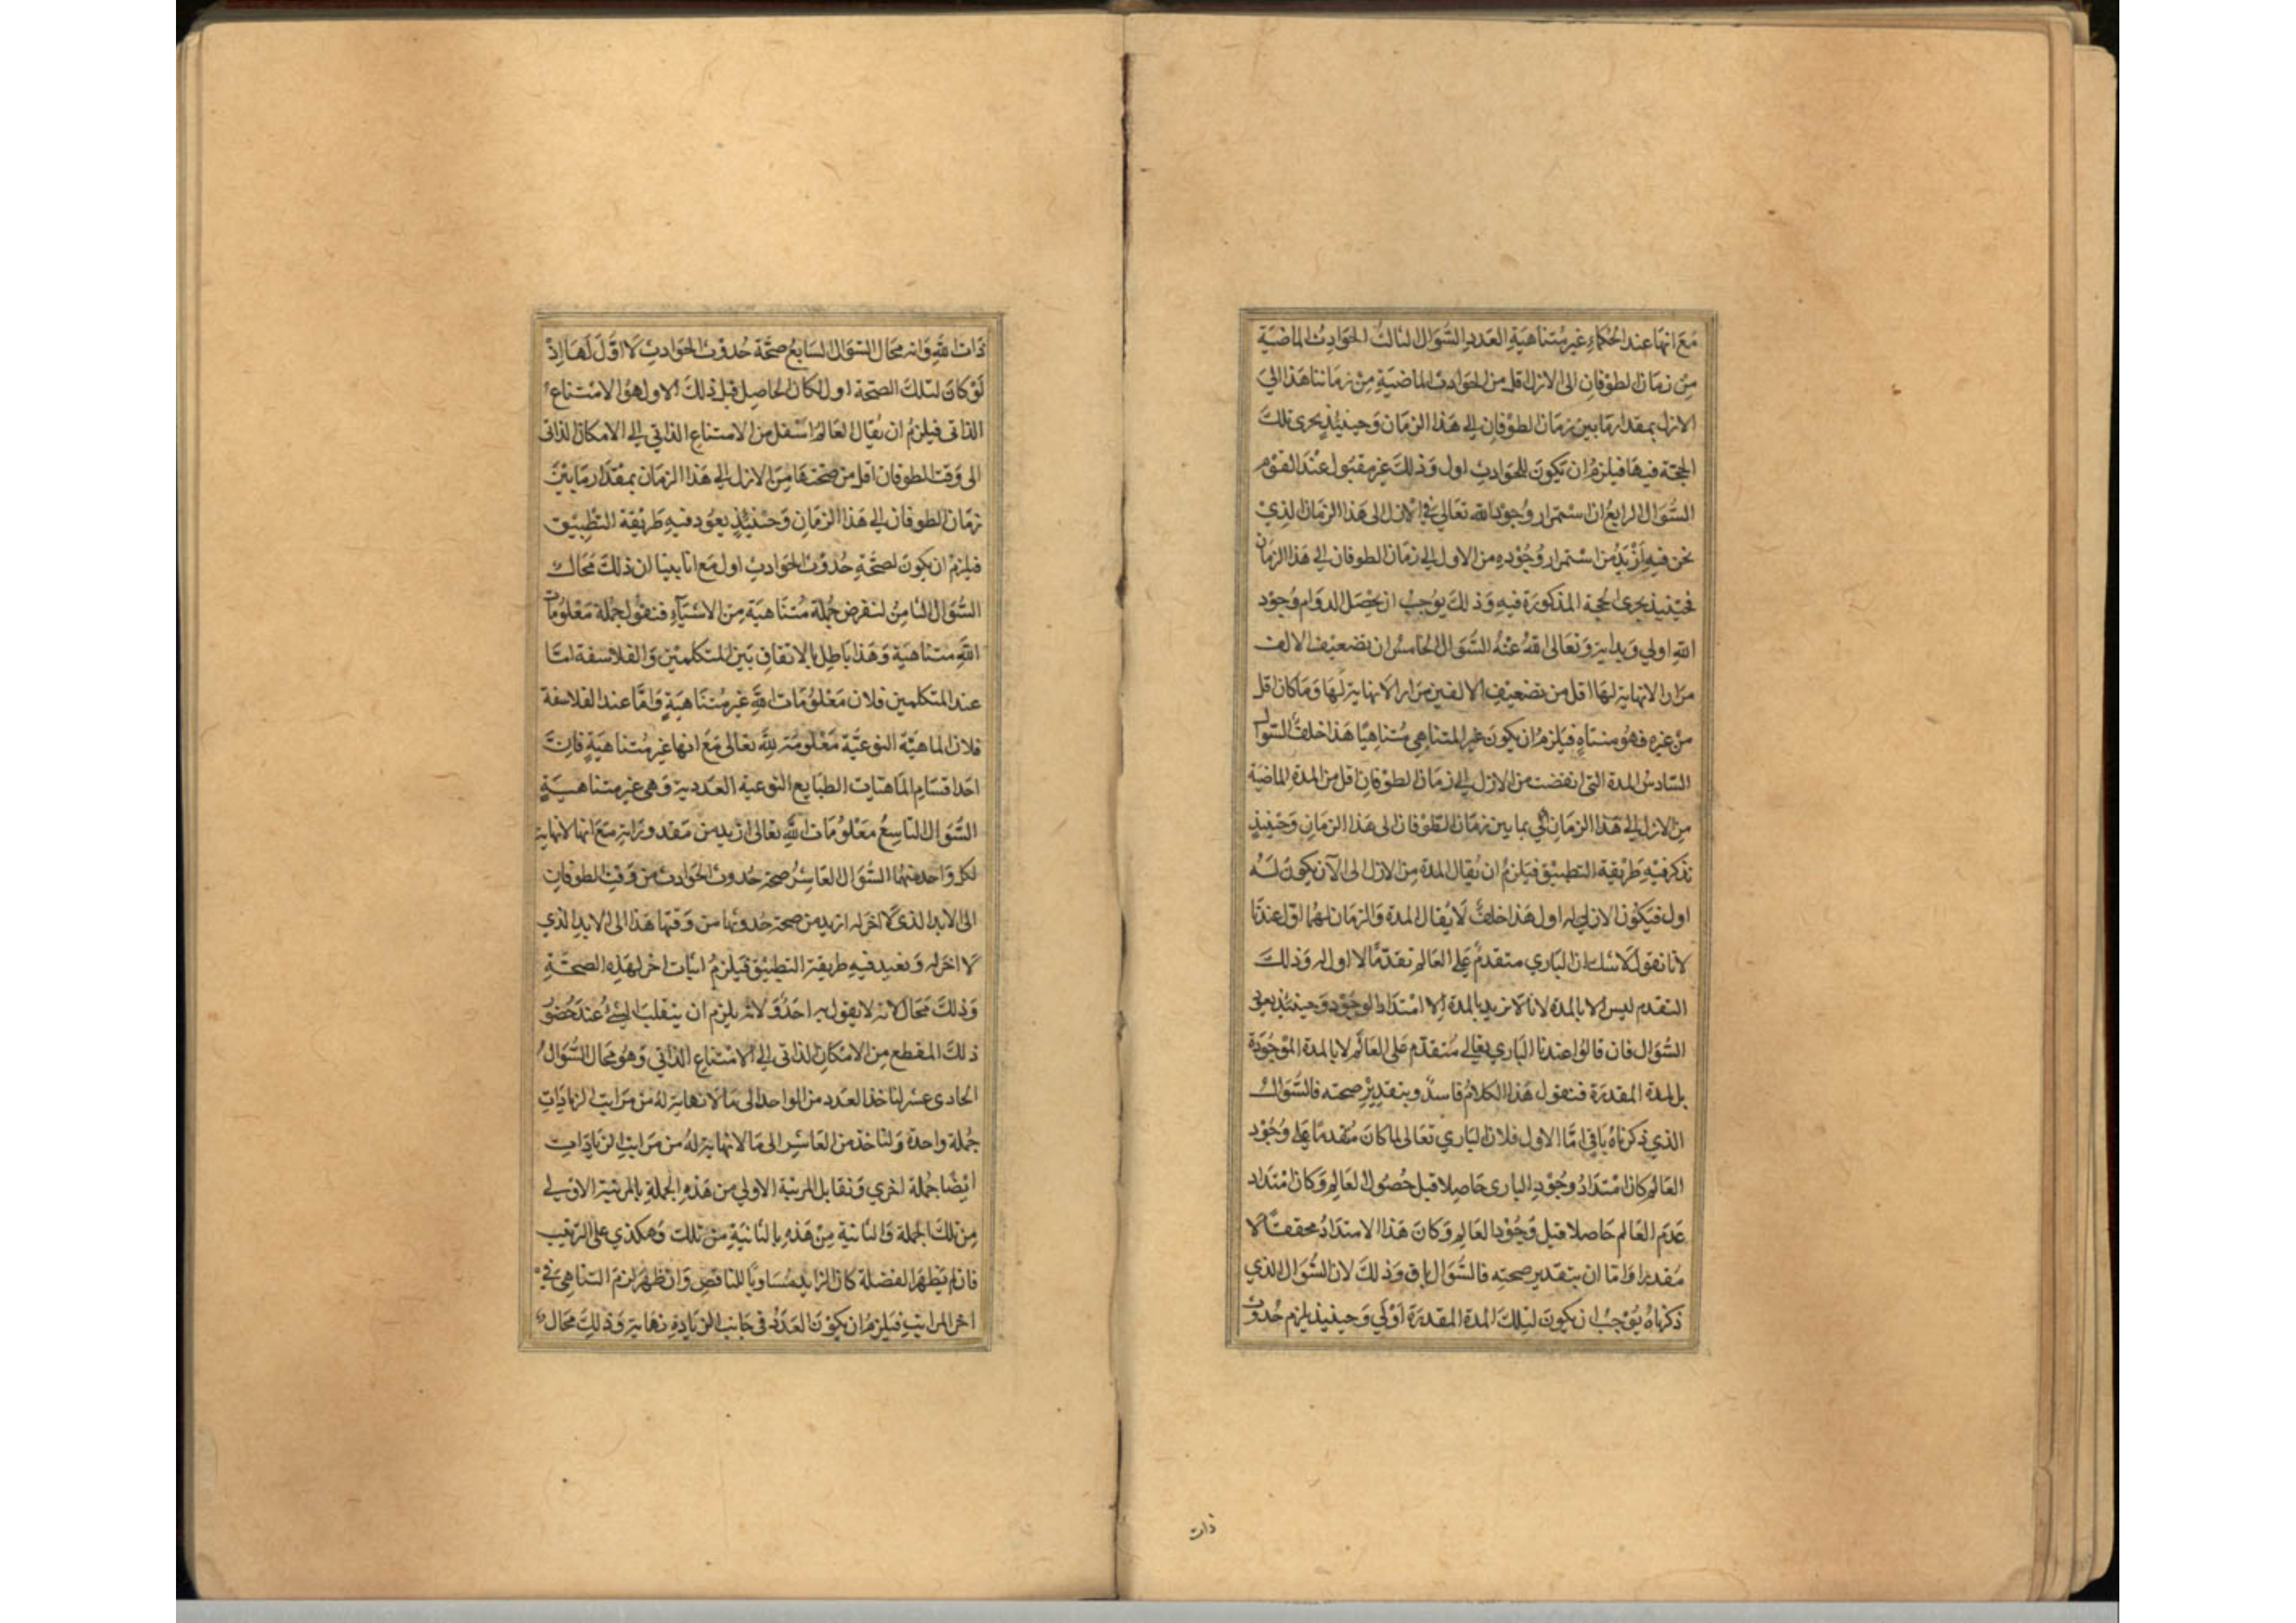 مع انها عند الحكماء غير متناهية العدد السؤال الثالث الحوادث الماضية
من زمان الطوفان الى الازل اقل من الحوادث الماضية من زماننا هذا الى
الازل بمقدار ما بين زمان الطوفان الى هذا الزمان وحينئذ يجرى تلك
الحجة فيها فيلزم ان تكون للحوادث اول وذلك غير مقبول عند القوم
السؤال الرابع ان استمرار وجود الله تعالى في الازل الى هذا الزمان الذي
نحن فيه ازيد من استمرار وجوده من الاول الى زمان الطوفان الى هذا الزمان
فحينئذ يجرى الحجة المذكورة فيه وذلك يوجب ان يحصل الدوام وجود
الله اولي وبداية وتعالى الله عنه السؤال الخامس ان تضعيف الالف
مرارا لا نهاية لها اقل من تضعيف الالفين مرارا لا نهاية لها وما كان اقل
من غيره فهو متناه فيلزم ان يكون غير المتناهي متناهيا هذا خلف السؤال
السادس المدة التى انقضت من الازل الى زمان الطوفان اقل من المدة الماضية
من الازل الى هذا الزمان بما بين زمان الطوفان الى هذا الزمان وحينئذ
نذكر فيه طريقة التطبيق فيلزم ان يقال المدة من الازل الى الآن يكون له
اول فيكون الازلي له اول هذا خلف لا يقال المدة والزمان لهما اول عندنا
لانا نقول لا شك ان الباري متقدم على العالم تقدما لا اول له وذلك
التقدم ليس الا بالمدة لانا لا نريد بالمدة الا امتداد الوجود وحينئذ يعود
السؤال فان قالوا عندنا الباري تعالى متقدم على العالم لا بالمدة الموجودة
بل المدة المقدرة فنقول هذا الكلام فاسد وبتقدير صحته فالسؤال
الذي ذكرناه باق اما الاول فلان الباري تعالى لما كان متقدما على وجود
العالم كان امتداد وجود البارى حاصلا قبل حصول العالم وكان امتداد
عدم العالم حاصلا قبل وجود العالم وكان هذا الامتداد محققا لا
مقدرا واما ان بتقدير صحته فالسؤال باق وذلك لان السؤال الذي
ذكرناه يوجب ان يكون لتلك المدة المقدرة اولي وحينئذ يلزم حدوث
ذات
ذات الله وانه محال السؤال السابع صحة حدوث الحوادث لا اول لها اذ
لو كان لتلك الصحة اول لكان الحاصل قبل ذلك الاول هو الامتناع
الذاتى فيلزم ان يقال العالم اسفل من الامتناع الذاتي الى الامكان الذاتى
الى وقت الطوفان اقل من صحتها من الازل الى هذا الزمان بمقدار ما بين
زمان الطوفان الى هذا الزمان وحينئذ يعود فيه طريقة التطبيق
فيلزم ان يكون لصحة حدوث الحوادث اول مع انا بينا ان ذلك محال
السؤال الثامن لنفرض جملة متناهية من الاشياء فنقول جملة معلومات
الله متناهية وهذا باطل بالاتفاق بين المتكلمين والفلاسفة اما
عند المتكلمين فلان معلومات الله غير متناهية واما عند الفلاسفة
فلان الماهية النوعية معلومة لله تعالى مع انها غير متناهية فان
احد اقسام الماهيات الطبايع النوعية العددية وهى غير متناهية
السؤال التاسع معلومات الله تعالى ازيد من مقدوراته مع انها لا نهاية
لكل واحد منهما السؤال العاشر صحة حدوث الحوادث من وقت الطوفان
الى الابد الذى لا اخر له ازيد من صحة حدوثها من وقتها هذا الى الابد الذي
لا اخر له ونعيد فيه طريقة التطبيق فيلزم اثبات اخر لهذه الصحة
وذلك محال لانه لا يقول به احد ولانه يلزم ان ينقلب الشئ عند حضور
ذلك المقطع من الامكان الذاتى الى الامتناع الذاتي وهو محال السؤال
الحادى عشر لناخذ العدد من الواحد الى ما لا نهاية له من مراتب الزيادات
جملة واحدة ولناخذ من العاشر الى ما لا نهاية له من مراتب الزيادات
ايضا جملة اخري ونقابل المرتبة الاولي من هذه الجملة بالمرتبة الاولى
من تلك الجملة والثانية من هذه بالثانية من تلك وهكذي على الترتيب
فان لم يظهر الفضلة كان الزايد مساويا للناقص وان ظهر لزم التناهي في
اخر المراتب فيلزم ان يكون العدد في جانب الزيادة نهاية وذلك محال